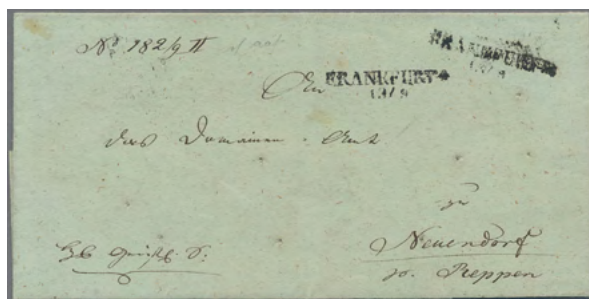 No 182/9 II
FRANKFURT
13/9
An FRANKFURT
13/9
das Domainen-Amt
zu
Neuendorf
p. Reppen